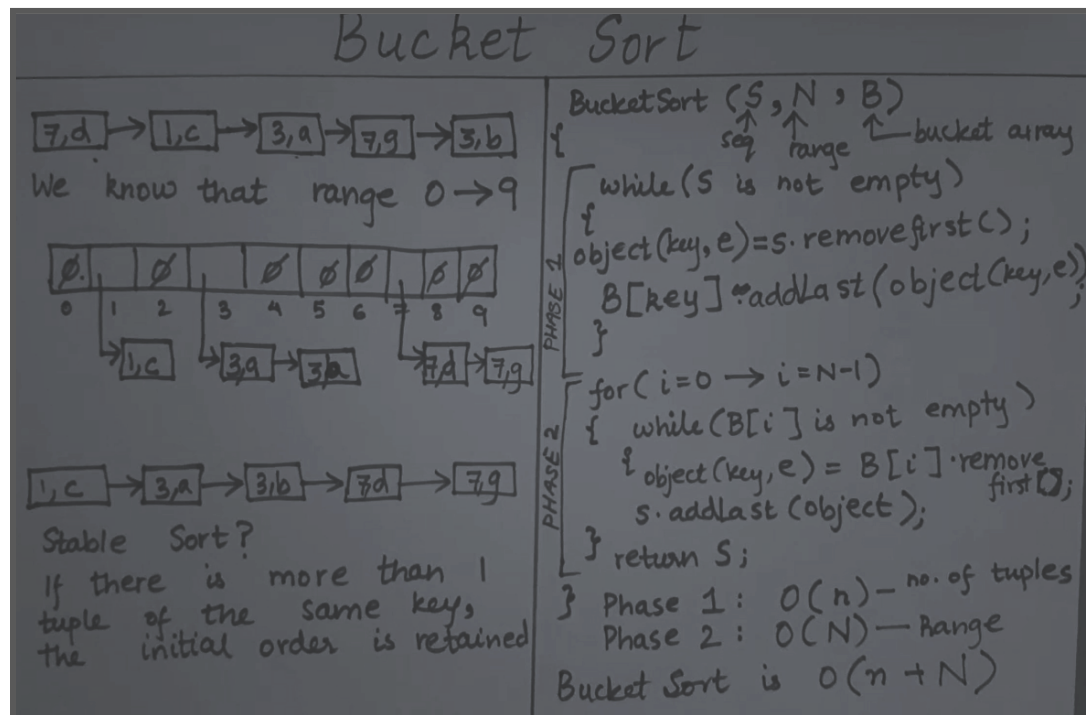 Bucket Sort
7,d → 1,c → 3,a → 7,g → 3,b
We know that range 0 → 9
Ø Ø Ø Ø Ø Ø Ø
0 1 2 3 4 5 6 7 8 9
1,c 3,a → 3,b 7,d → 7,g
1,c → 3,a → 3,b → 7d → 7,g
Stable Sort?
If there is more than 1
tuple of the same key,
the initial order is retained
BucketSort (S, N, B)
{ seq range bucket array
PHASE 1
while (S is not empty)
{
object(key,e)=s.removefirst();
B[key].addLast(object(key,e));
}
PHASE 2
for(i=0 → i=N-1)
{ while(B[i] is not empty)
{ object(key,e) = B[i].remove
first();
s.addLast(object);
} return S;
} Phase 1: O(n) - no. of tuples
Phase 2: O(N) - Range
Bucket Sort is O(n + N)